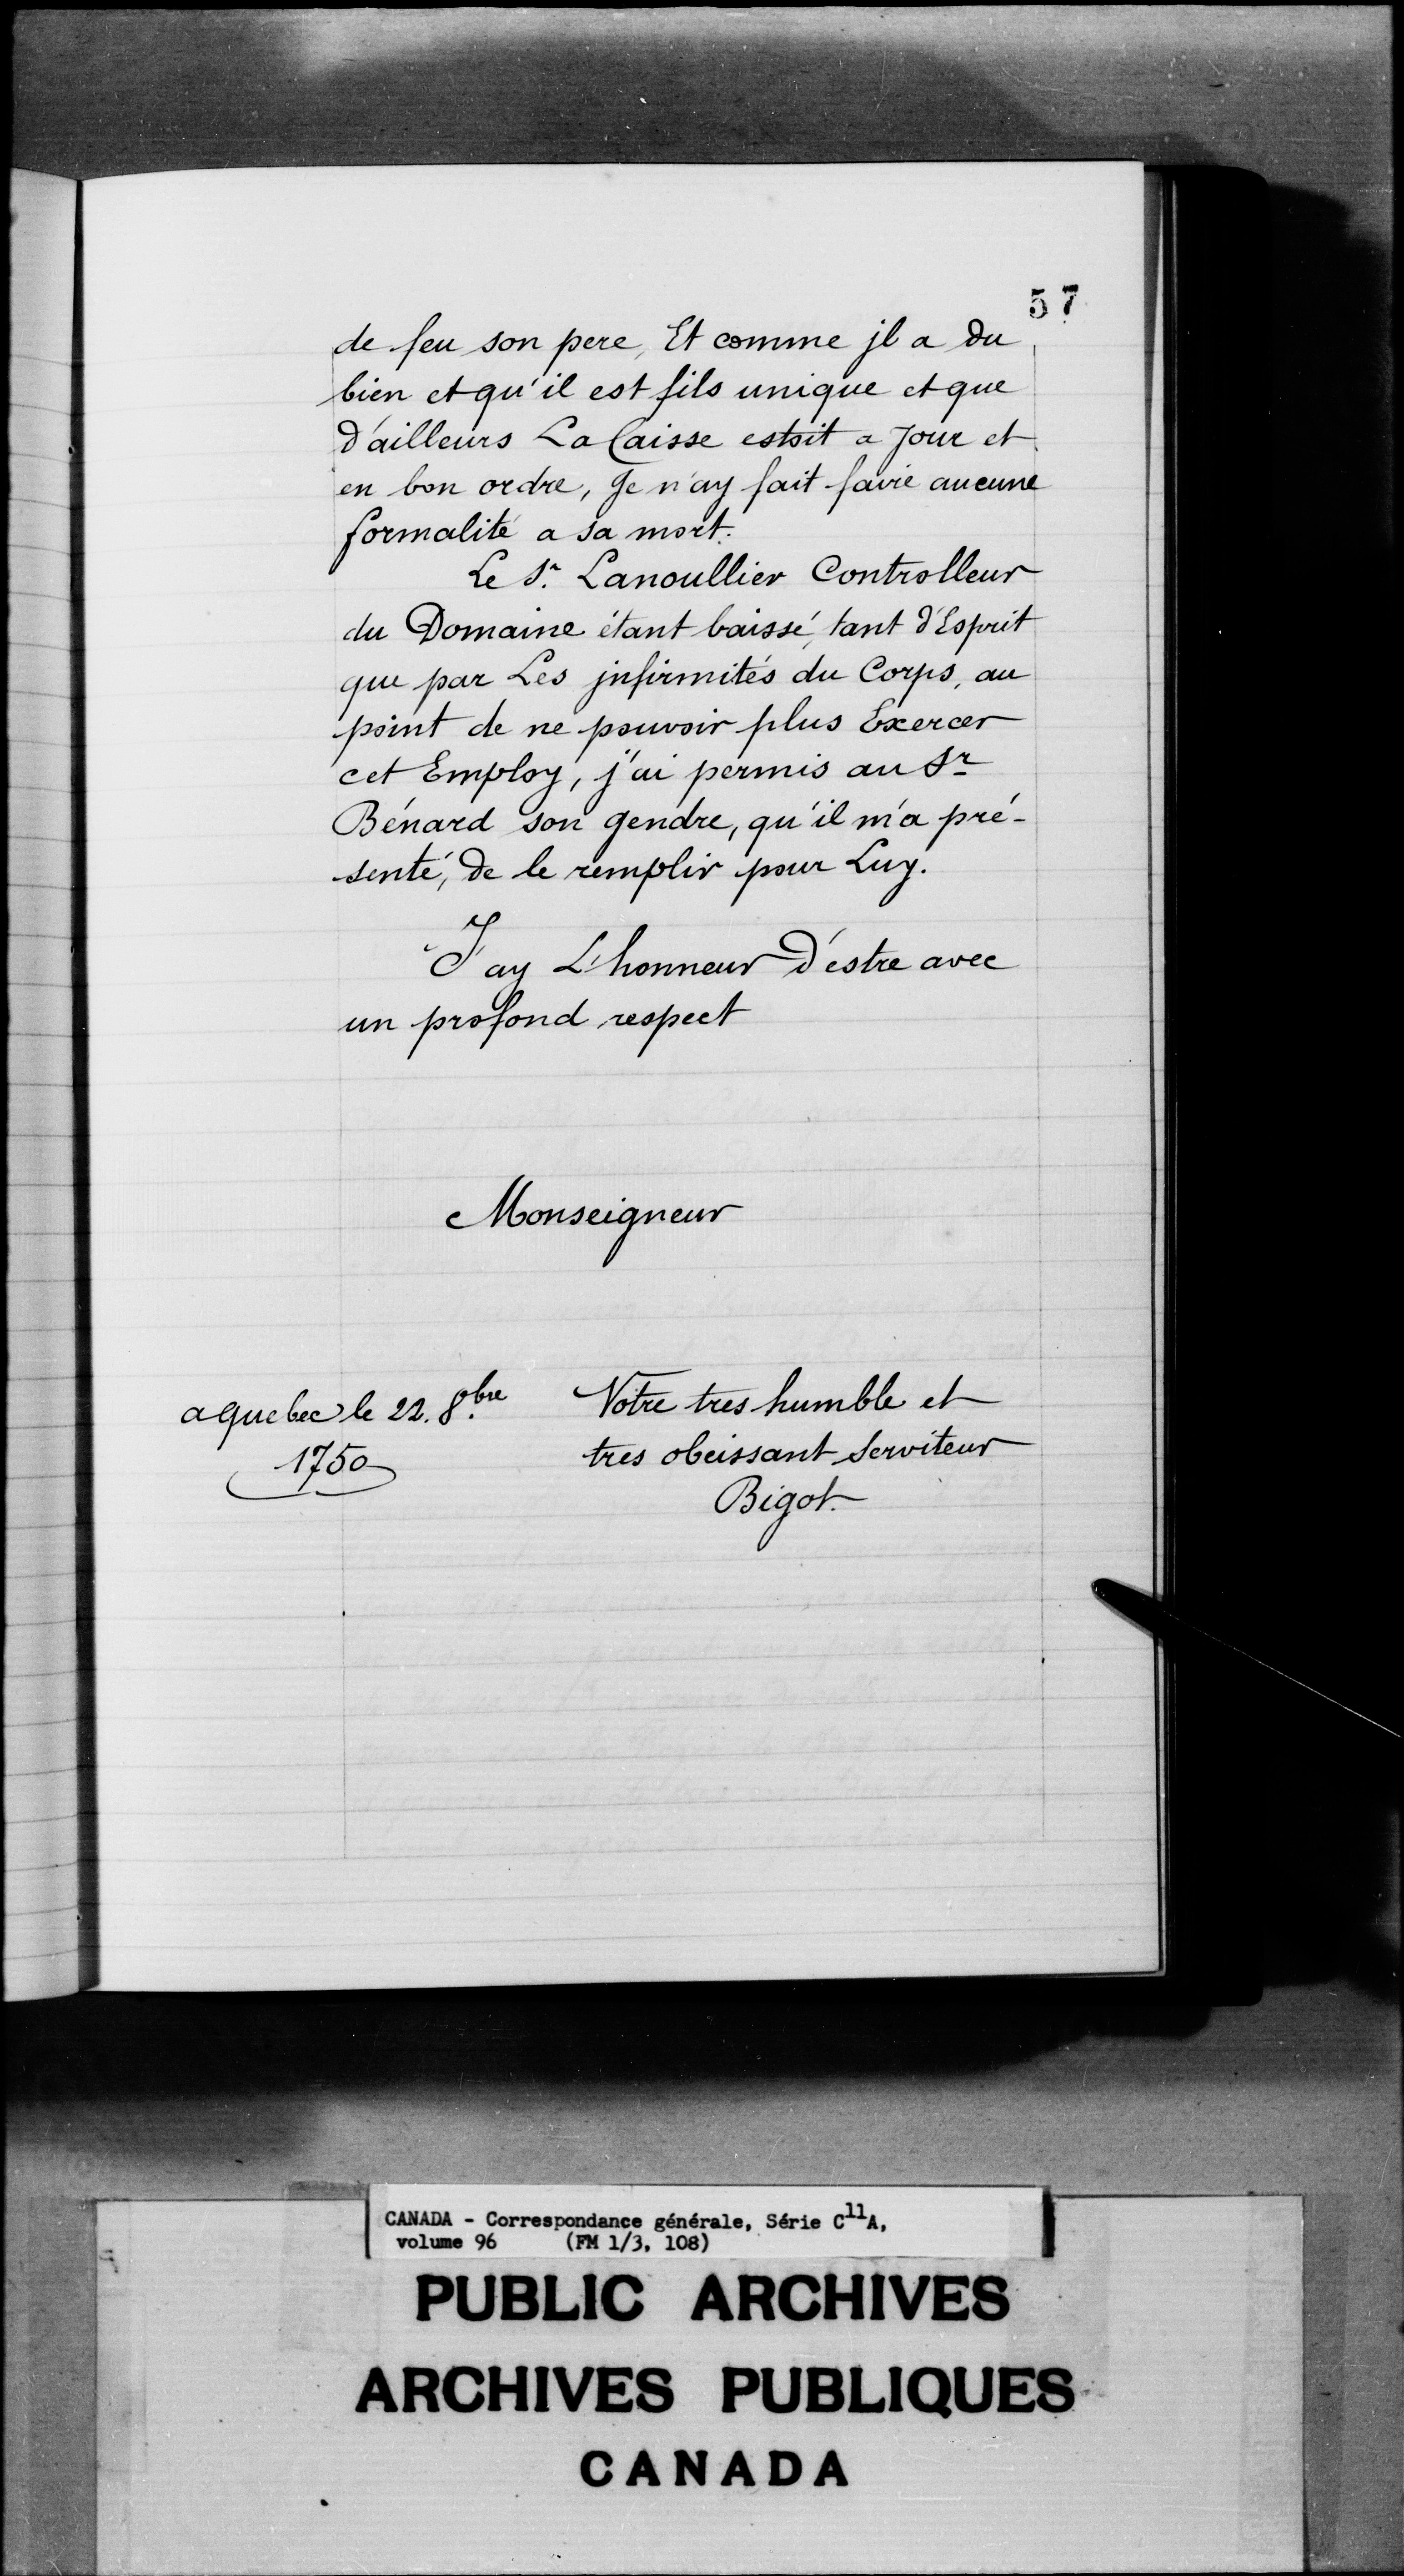 57
de feu son pere, Et comme jl a du
bien et qu'il est fils unique et que
d'ailleurs La Caisse estoit a Jour et
en bon ordre, Je n'ay fait faire aucune
formalité a sa mort.
Le Sr. Lanoullier Controlleur
du Domaine étant baissé, tant d'Esprit
que par Les jnfirmités du Corps, au
point de ne pouvoir plus Exercer
cet Employ, j'ai permis au Sr
Bénard son gendre, qu'il m'a pré-
senté, de le remplir pour Luy.
J'ay L'honneur d'estre avec
un profond respect
Monseigneur
a quebec le 22. 8.bre
1750
Votre tres humble et
tres obeissant Serviteur
Bigot.
CANADA - Correspondance générale, Série C11A,
volume 96 (FM 1/3, 108)
PUBLIC ARCHIVES
ARCHIVES PUBLIQUES
CANADA